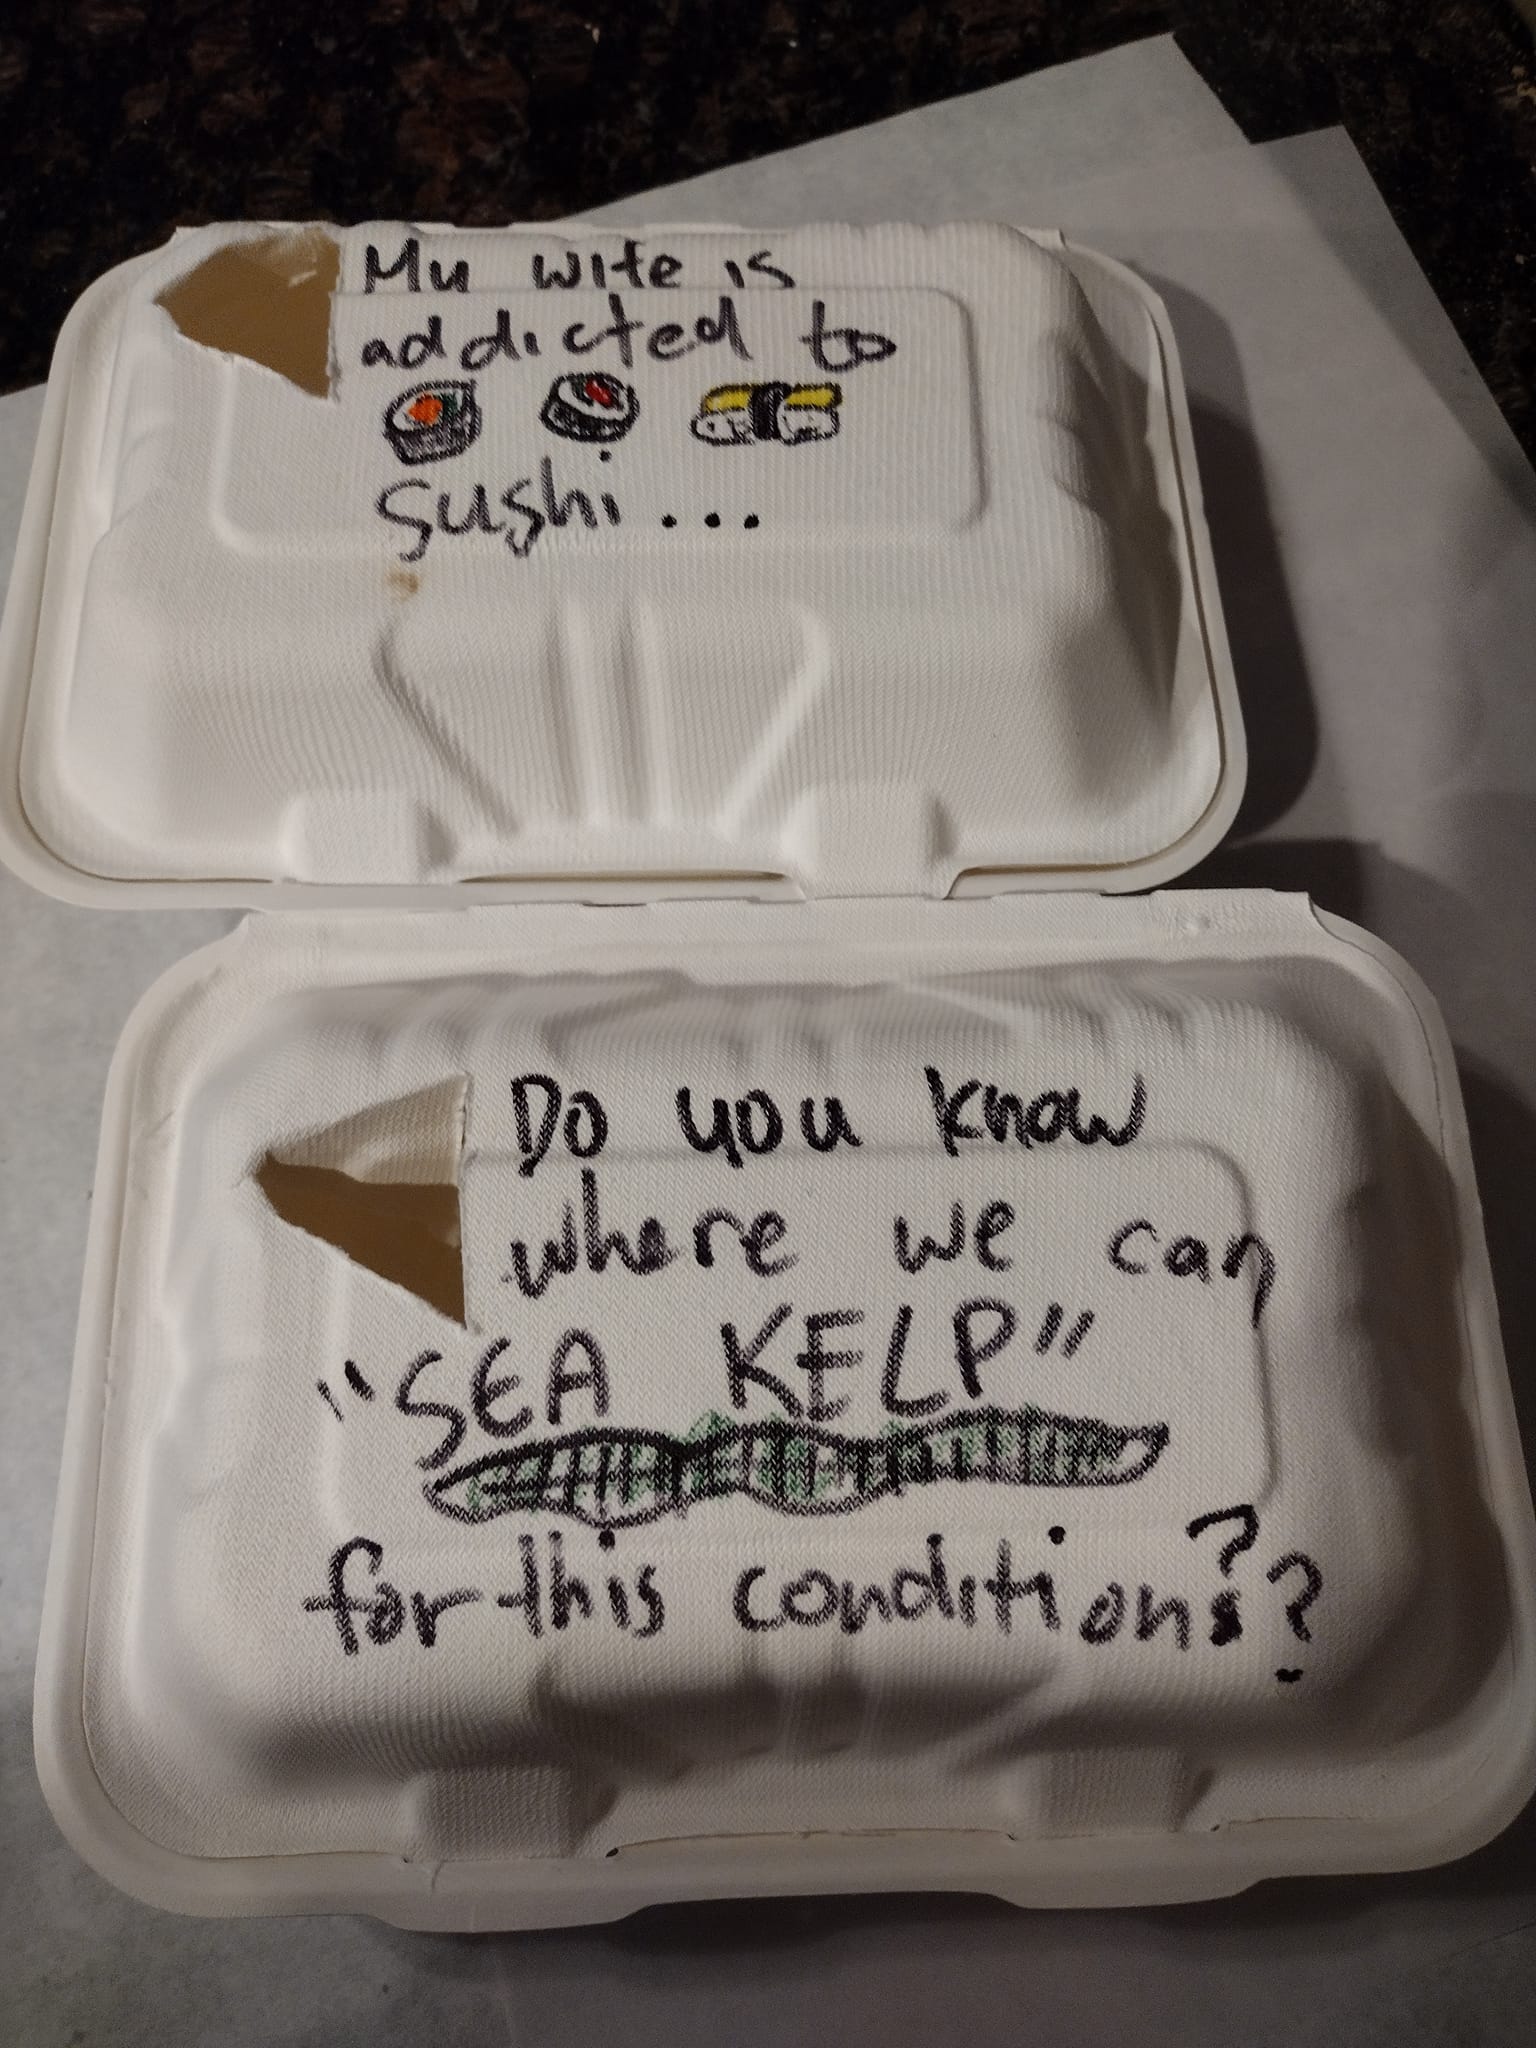 My wife is
addicted to
sushi...
Do you know
where we can
"SEA KELP"
for this condition??